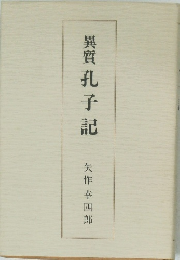 異質孔子記
矢作幸四郎